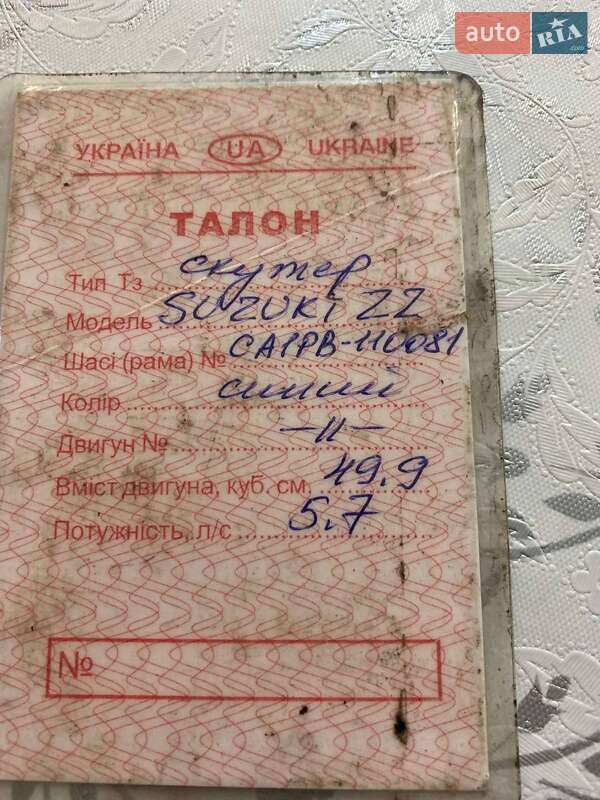 auto RIA .com
УКРАЇНА UA UKRAINE
ТАЛОН
Тип Тз скутер
Модель SUZUKI ZZ
Шасі (рама) № CA1PB-110081
Колір синий
Двигун № –||–
Вміст двигуна, куб. см. 49.9
Потужність, л/с 5.7
№